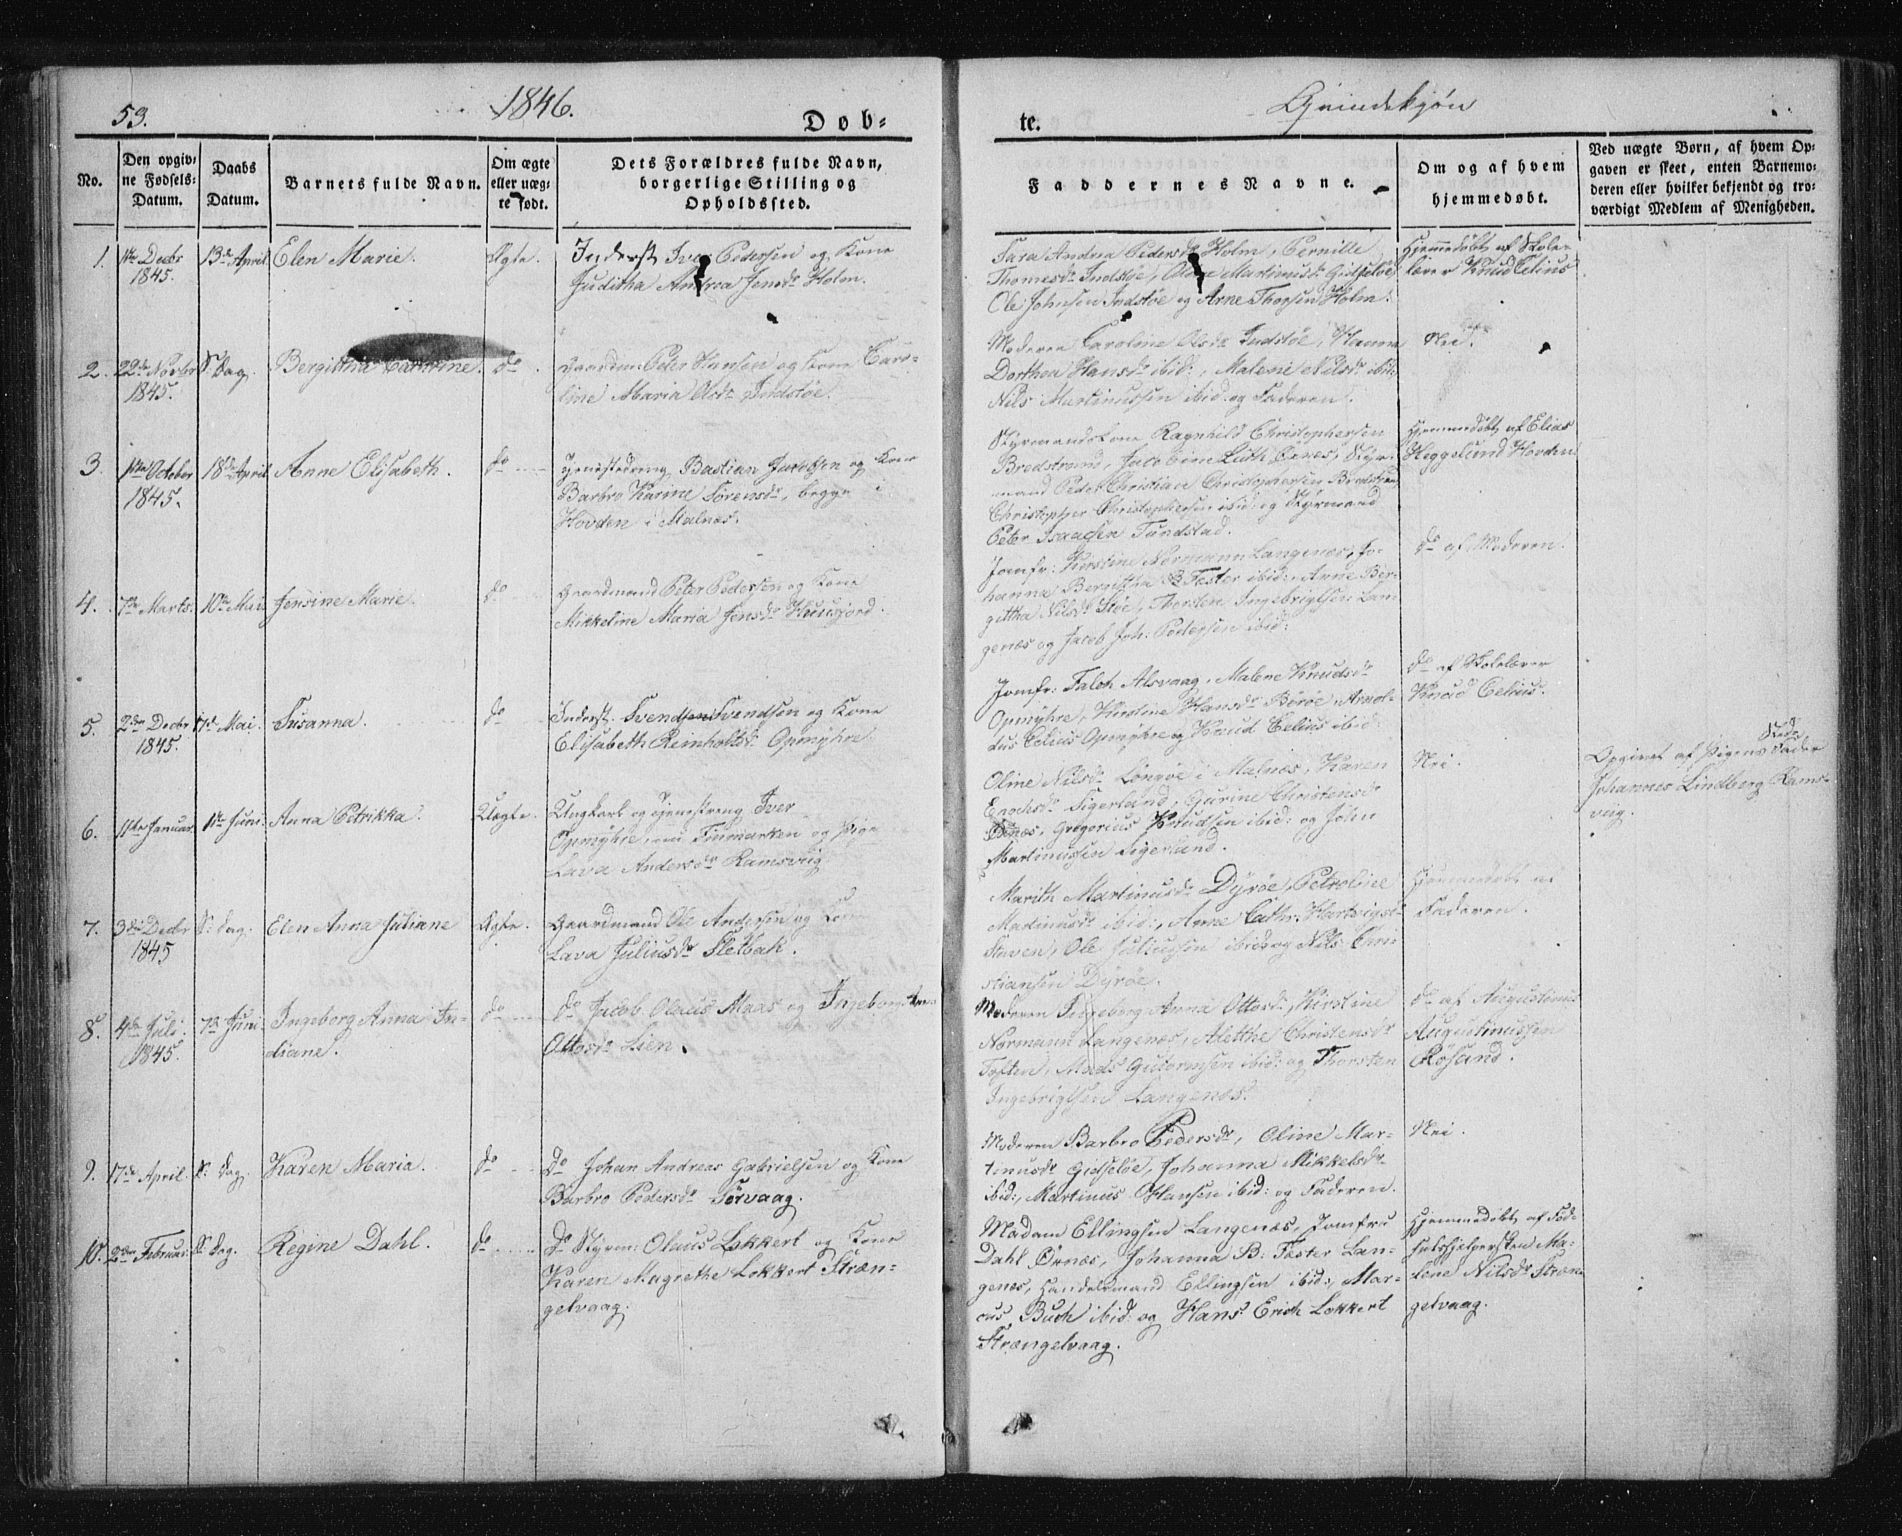 53.
1846.
Døb-
te.
Qvindekjøn
No.
Den opgiv-
ne Fødsels-
Datum.
Daabs
Datum.
Barnets fulde Navn.
Om ægte
eller uæg-
te født.
Dets Forældres fulde Navn,
borgerlige Stilling og
Opholdssted.
Faddernes Navne.
Om og af hvem
hjemmedøbt.
Ved uægte Børn, af hvem Op-
gaven er skeet, enten Barnemo-
deren eller hvilket bekjendt og tro-
værdigt Medlem af Menigheden.
1.
1ste Decbr
1845.
13de April
Elen Marie.
Ægte.
Inderst Iver Pedersen og Kone
Juditha Andrea Jensdr Holm.
Sara Andrea Pedersdr Holm, Pernille
Thomesdr Indstøe, Oline Martinusdr Gidseløe
Ole Johnsen Indstøe og Arne Thorsen Holm.
Hjemmedøbt af Skole-
lærer Knud Celius
2.
22de Novbr
1845.
S: Dag.
Bergitha Cathrine.
do.
Gaardm: Peter Hansen og Kone Caro-
line Maria Olsdr Indstøe.
Moderen Caroline Olsdr Indstøe, Hanna
Dorthea Hansdr ibid:, Maleni Nilsdr ibid:
Nils Martinussen ibid: og Faderen.
Nei.
3.
1ste October
1845.
18de April
Anne Elisabeth.
do
Tjenestedreng Bastian Jacobsen og Kone
Barbro Karine Sørensdr, begge i
Hovden i Malnæs.
Styrmandskone Ragnhild Christophersen
Bredstrand, Jacobine Lüth Ørnes, Styr-
mand Peder Christian Christophersen Bredstrand
Christopher Christophersen ibid: og Styrmand
Peter Isaacsen Tundstad.
Hjemmedøbt af Elias
Heggelund Hovden
4.
7de Marts.
10de Mai
Jensine Marie.
do
Gaardmand Peter Pedersen og Kone
Mikkeline Maria Jensdr Skuusjord.
Jomfr: Kirstine Normann Langenæs, Jo-
hanna Bernttha B Fester ibid:, Anne Ber-
gittha Nilsdr Støe, Thorsten Ingebrigtsen Lan-
genæs og Jacob Joh: Pedersen ibid:
do af Moderen.
5.
2den Decbr
1845.
17de Mai.
Susanna.
do
Inderst. Svend Svendsen og Kone
Elisabeth Reinholtsdr Opmyhre.
Jomfr: Falch Alsvaag, Malene Knudsdr
Opmyhre, Kirstine Hansdr Børøe, Arnol-
dus Celius Opmyhre og Knud Celius ibid:
do af Skolelærer
Knud Celius.
6.
11te Januar
11te Juni.
Anna Petrikka.
Uægte.
Ungkarl og Tjenestdreng Iver
Opmyhre, nu Finmarken og Pige
Lava Andersdr Ramsviig
Oline Nilsdr Lønrøe i Malnæs, Karen
Enochsdr Tigerland, Gurine Christensdr
Ørnæs, Gregorius Knudsen ibid: og John
Martinussen Tigerland.
Nei.
Opgivet af Pigens Sted-
Fader
Johannes Lindberg Rams-
viig.
7.
3die Decbr
1845
S: Dag.
Elen Anna Juliane
Ægte.
Gaardmand Ole Andersen og Kone
Lava Juliusdr Sletbak.
Marith Martinusdr Dyrøe, Petroline
Martinusdr ibid:, Anne Cathr: Hartvigsdr
Staven, Ole Juliussen ibid: og Nils Chri-
stiansen Dyrøe.
Hjemmedøbt af
Faderen.
8.
4de Juli
1845.
7de Juni
Ingeborg Anna In-
diane.
do
do Jacob Olaus Maas og Ingeborg Anna
Ottosdr Lien.
Moderen Ingeborg Anna Ottosdr, Kirstine
Normann Langenæs, Alethe Christensdr
Toften, Mads Guttormsen ibid: og Thorsten
Ingebrigtsen Langenæs.
do af Augustinus
Augustinussen
Røsand.
9.
17de April.
S: Dag.
Karen Maria.
do
Do Johan Andreas Gabrielsen og Kone
Barbro Pedersdr Sørvaag.
Moderen Barbro Pedersdr, Oline Mar-
tinusdr Gidseløe, Johanna Mikkelsdr
ibid:, Martinus Hansen ibid: og Faderen.
Nei.
10.
2den Februar.
S: Dag.
Regine Dahl.
do
Do Styrm: Olaus Lokkert og Kone
Karen Magrethe Lokkert Stræn-
gelvaag.
Madam Ellingsen Langenæs, Jomfru
Dahl Ørnæs, Johanna B: Fæster Lan-
genæs, Handelsmand Ellingsen ibid:, Mar-
cus Buch ibid: og Hans Erich Lokkert
Strængelvaag.
Hjemmedøbt af Fød-
selshjelpersken Ma-
lene Nilsdr Stræn-
gelvaag.